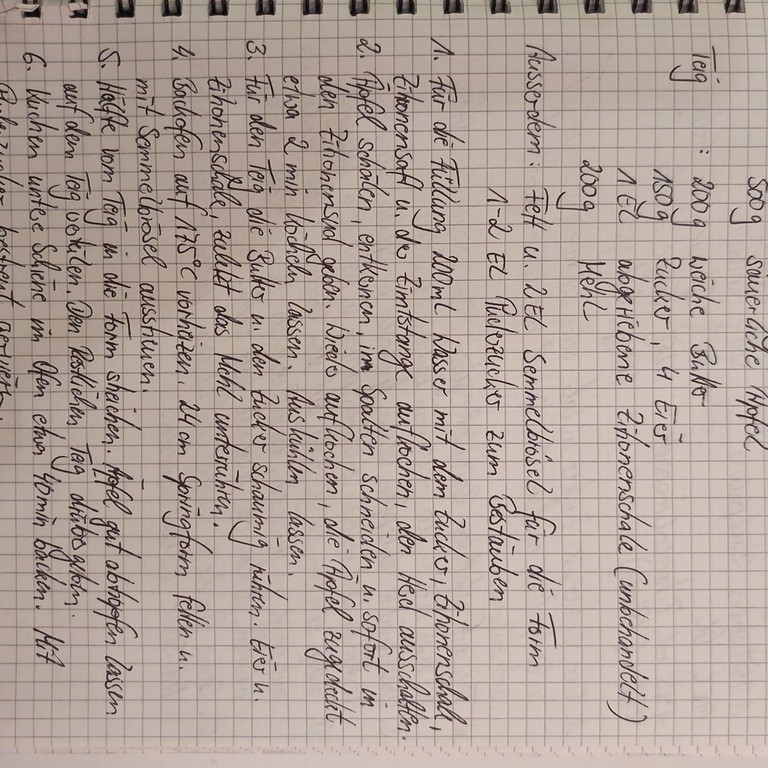 500g säuerliche Äpfel
Teig : 200g weiche Butter
150g Zucker, 4 Eier
1 EL abgeriebene Zitronenschale (unbehandelt)
200g Mehl
Ausserdem: Fett u. 2 EL Semmelbrösel für die Form
1-2 EL Puderzucker zum Bestäuben
1. Für die Füllung 200ml Wasser mit dem Zucker, Zitronenschale,
Zitronensaft u. der Zimtstange aufkochen, den Herd ausschalten.
2. Äpfel schälen, entkernen, in Spalten schneiden u. sofort in
den Zitronensud geben. Wieder aufkochen, die Äpfel zugedeckt
etwa 2 min köcheln lassen. Auskühlen lassen.
3. Für den Teig die Butter u. den Zucker schaumig rühren. Eier u.
Zitronenschale, zuletzt das Mehl unterrühren.
4. Backofen auf 175°C vorheizen. 24cm Springform fetten u.
mit Semmelbrösel ausstreuen.
5. Hälfte vom Teig in die Form streichen. Äpfel gut abtropfen lassen
auf dem Teig verteilen. Den restlichen Teig darübergeben.
6. Kuchen untere Schiene im Ofen etwa 40min backen. Mit
Puderzucker bestreut servieren.